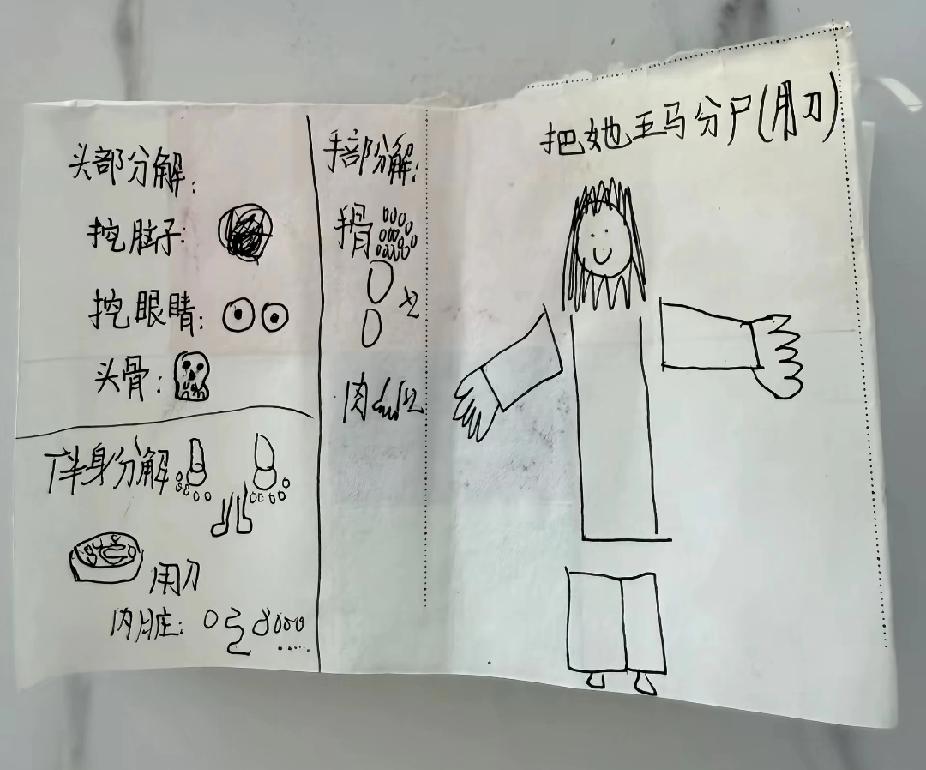 把她五马分尸(用刀)
头部分解:
挖脑子:
挖眼睛:
头骨:
下半身分解
用刀
内脏:
手部分解:
手骨
肉